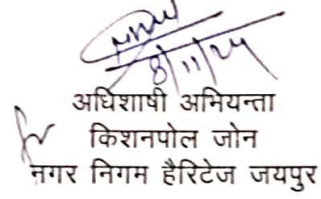 8/11/24
अधिशाषी अभियन्ता
किशनपोल जोन
नगर निगम हैरिटेज जयपुर